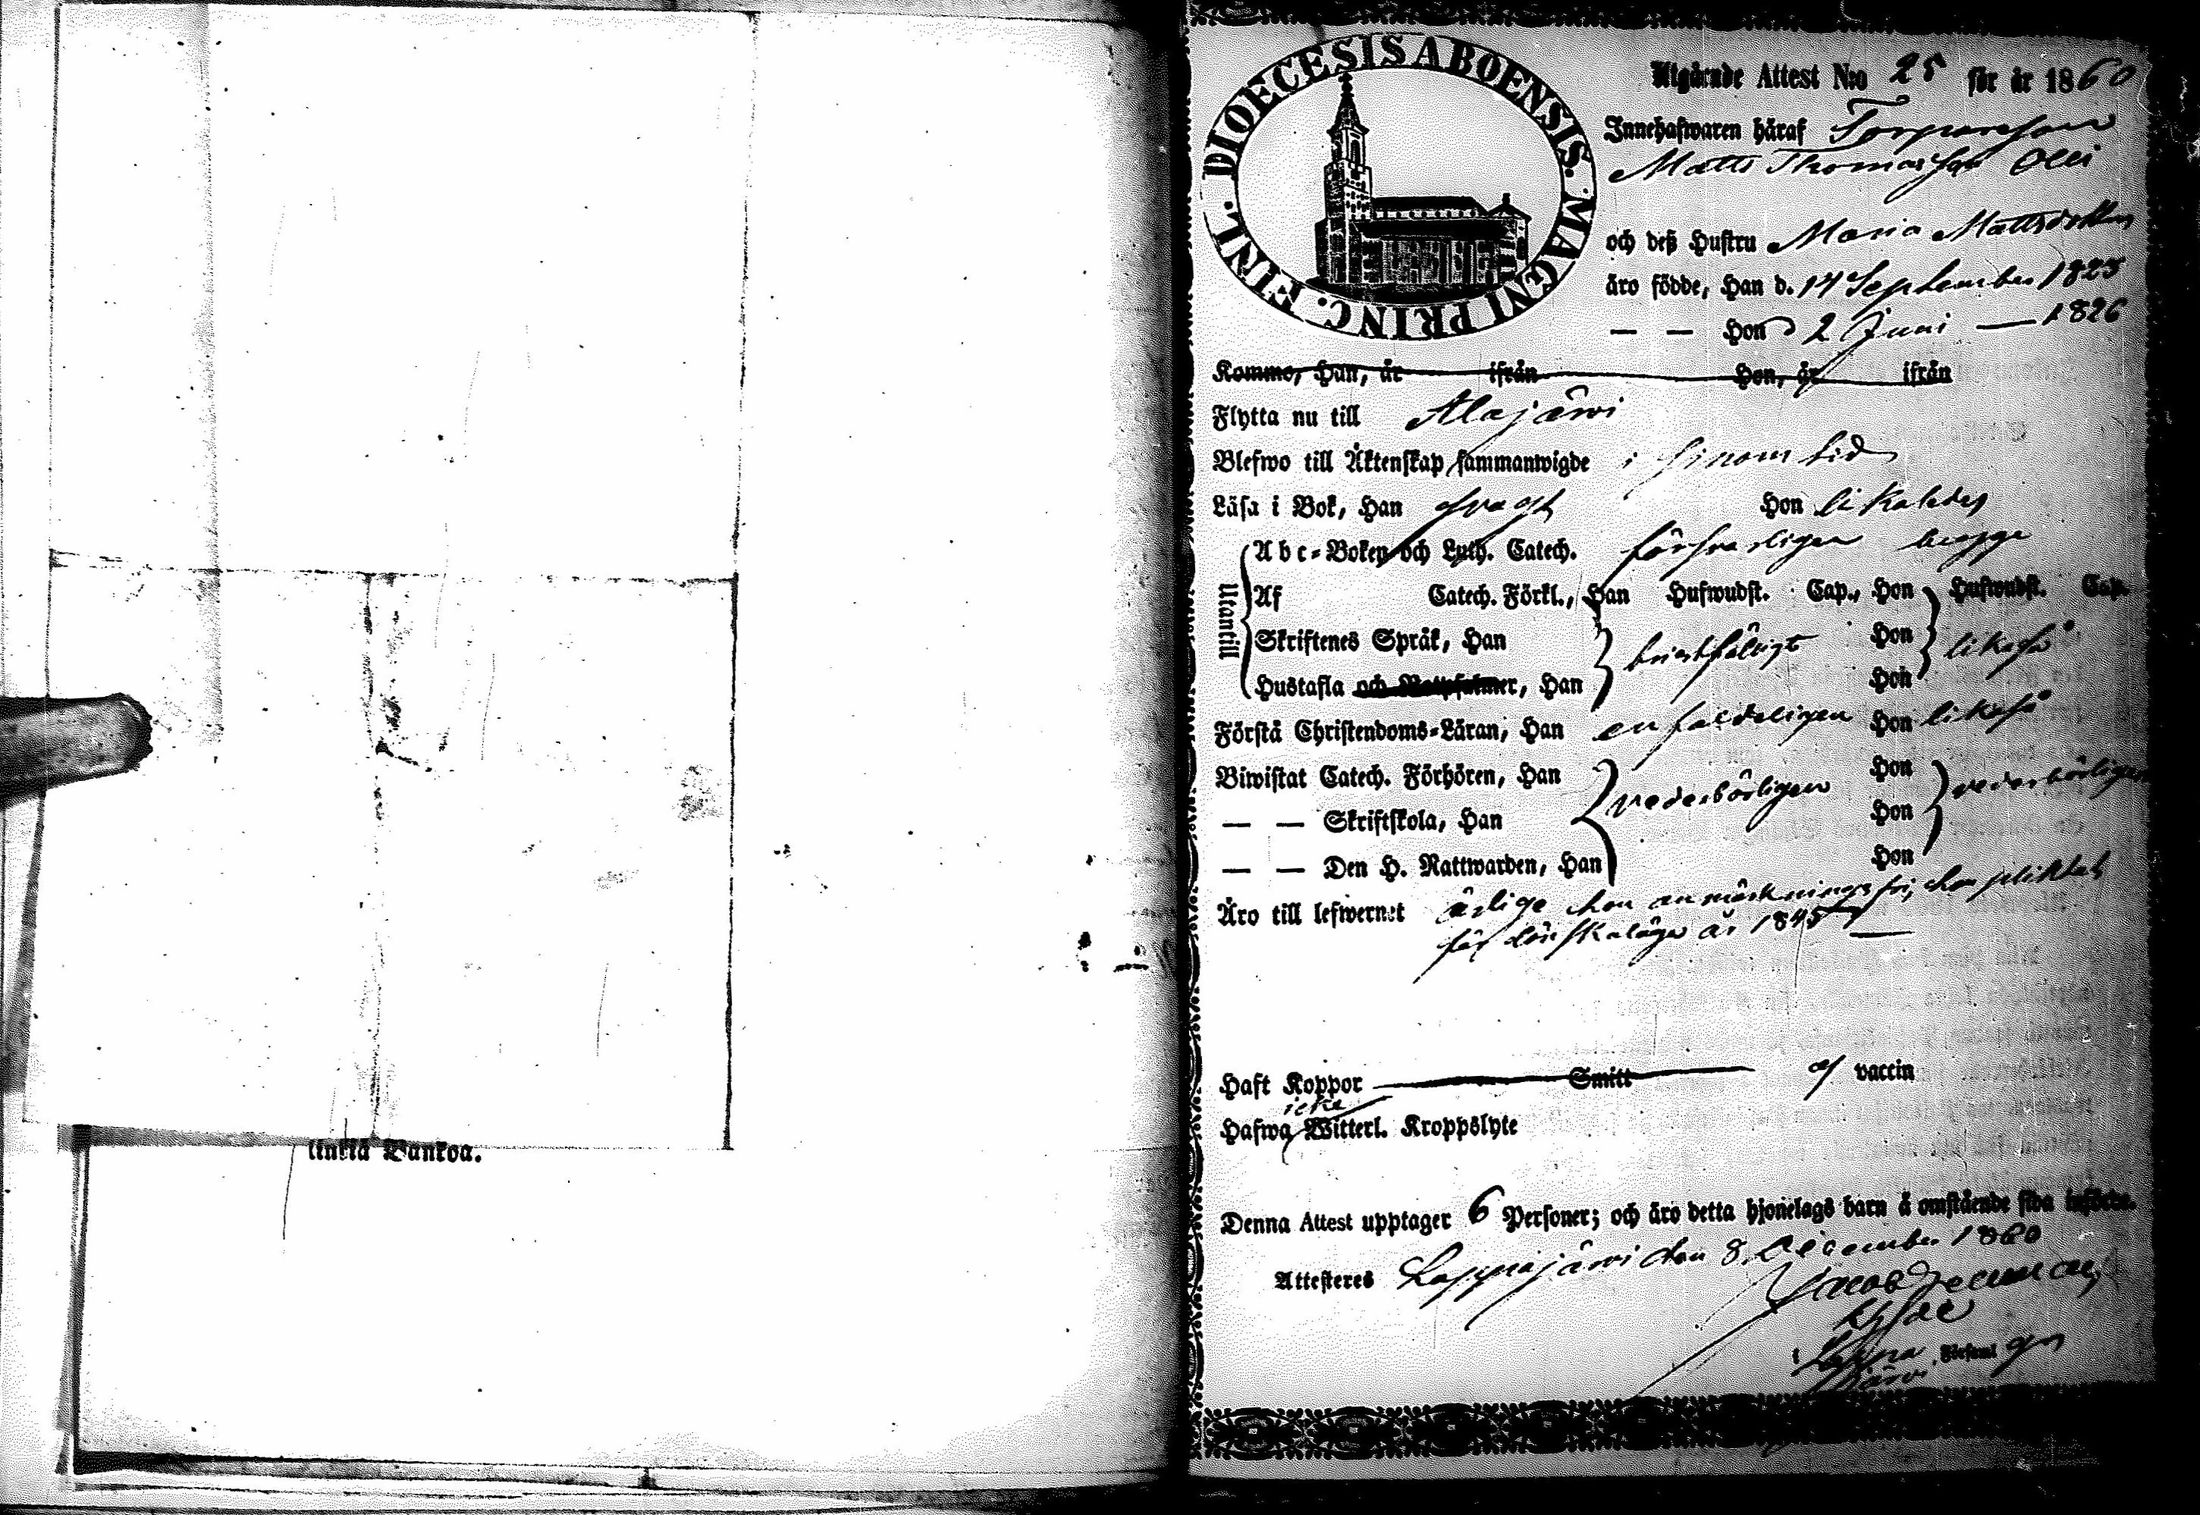 unkia Pankoa.
DIOECESIS ABOENSIS. MAGNI PRINC. FINL.
Utgående Attest N:o 25 för år 1860
Innehafwaren häraf Torparesson
Matts Thomasson Olli
och deß Hustru Maria Mattsdotter
äro födde, Han d. 14 September 1825
— — Hon d 2 Juni — 1826
Komme, Han, år ifrån Hon, år ifrån
Flytta nu till Alajärwi
Blefwo till Äktenskap sammanwigde i sinom tid
Läsa i Bok, Han svagt Hon likaledes
Utantill
Abc-Boken och Luth. Catech. försvarligen begge
Af Catech. Förkl., Han Hufwudst. Cap., Hon Hufwudst. Cap.
Skriftenes Språk, Han bristfäligt Hon likaså
Hustafla och Botpsalmer, Han Hon
Förstå Christendoms-Läran, Han enfaldeligen Hon likaså
Biwistat Catech. Förhören, Han vederbörligen Hon vederbörligen
— — Skriftskola, Han Hon
— — Den H. Nattwarden, Han Hon
Äro till lefwernet ärlige han anmärkningsfri, hon pliktat
för lönskaläge år 1845
Haft Koppor Smitt af vaccin
icke
Hafwa Witterl. Kroppslyte
Denna Attest upptager 6 Personer; och äro detta hjonelags barn å omstående sida införde.
Attesteres Lappajärwi den 8 December 1860
Jacob
i Lappajärwi Församl